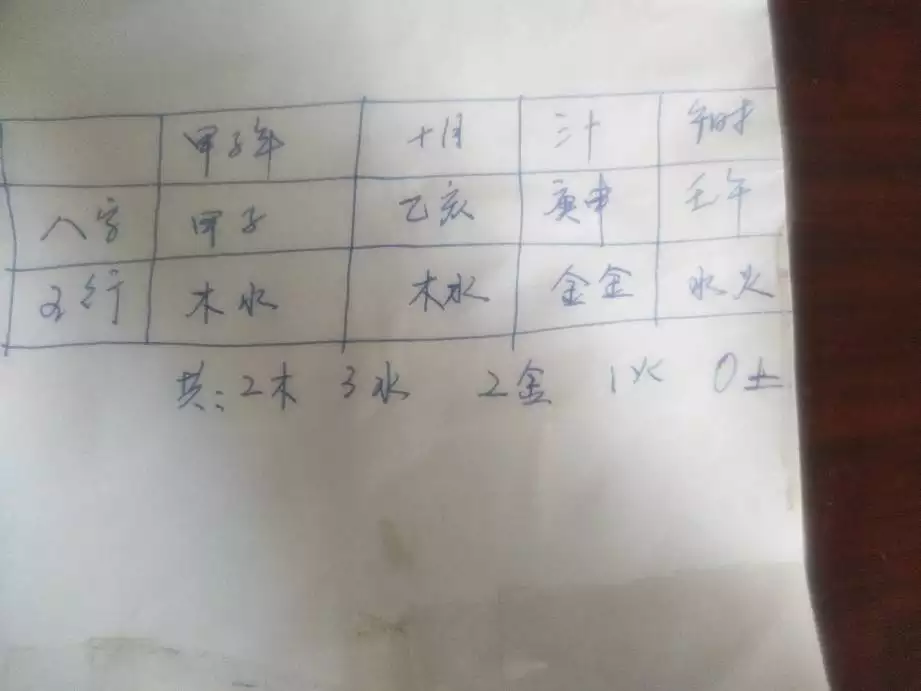 甲子年 十月 三十 午时
八字 甲子 乙亥 庚申 壬午
五行 木水 木水 金金 水火
共：2木 3水 2金 1火 0土